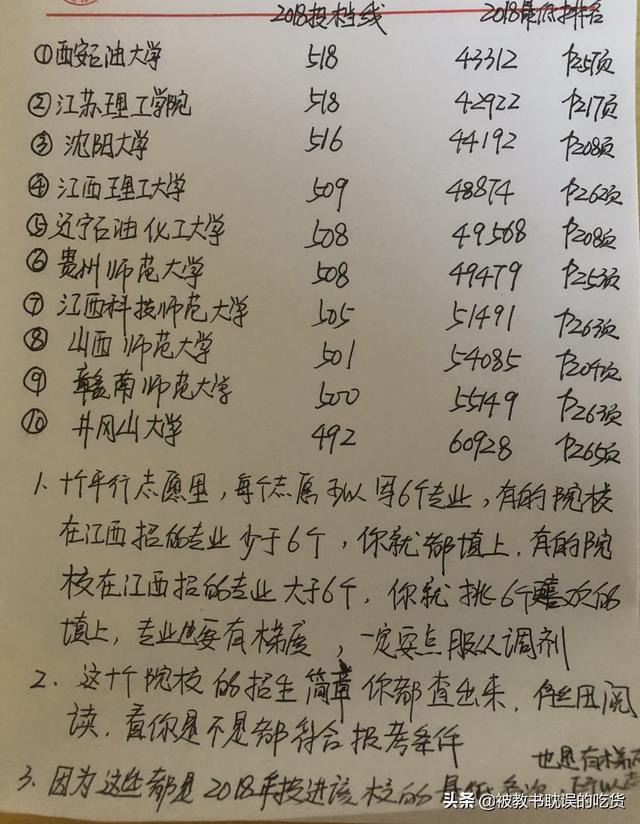 2018投档线 2018最低排名
①西安石油大学 518 43312 P257页
②江苏理工学院 518 42922 P217页
③沈阳大学 516 44192 P208页
④江西理工大学 509 48874 P262页
⑤辽宁石油化工大学 508 49568 P208页
⑥贵州师范大学 508 49479 P253页
⑦江西科技师范大学 505 51491 P263页
⑧山西师范大学 501 54085 P204页
⑨赣南师范大学 500 55149 P263页
⑩井冈山大学 492 60928 P265页
1、十个平行志愿里，每个志愿可以写6个专业，有的院校
在江西招的专业少于6个，你就都填上，有的院
校在江西招的专业大于6个，你就挑6个喜欢的
填上，专业也要有梯度，一定要点服从调剂
2、这十个院校的招生简章你都查出来，仔细阅
读，看你是不是都符合报考条件
也是有梯
3、因为这些都是2018年投进该校的最低
头条 @被教书耽误的吃货